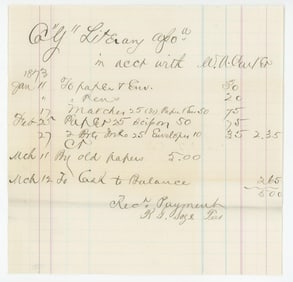 Co "Y" Literary Asso"
in acct with M. A. Carter
1873
Jan 11 To paper & Env. 50
" " Pens 20
" 17 Matches 25 Paper & Env 50 75
Feb 25 Paper 25 50 75
" 27 2 25 Envelopes 10 35 2.35
Cr
Mch 11 By old papers 5.00
Mch 12 To Cash to Balance 265
500
Recd Payment